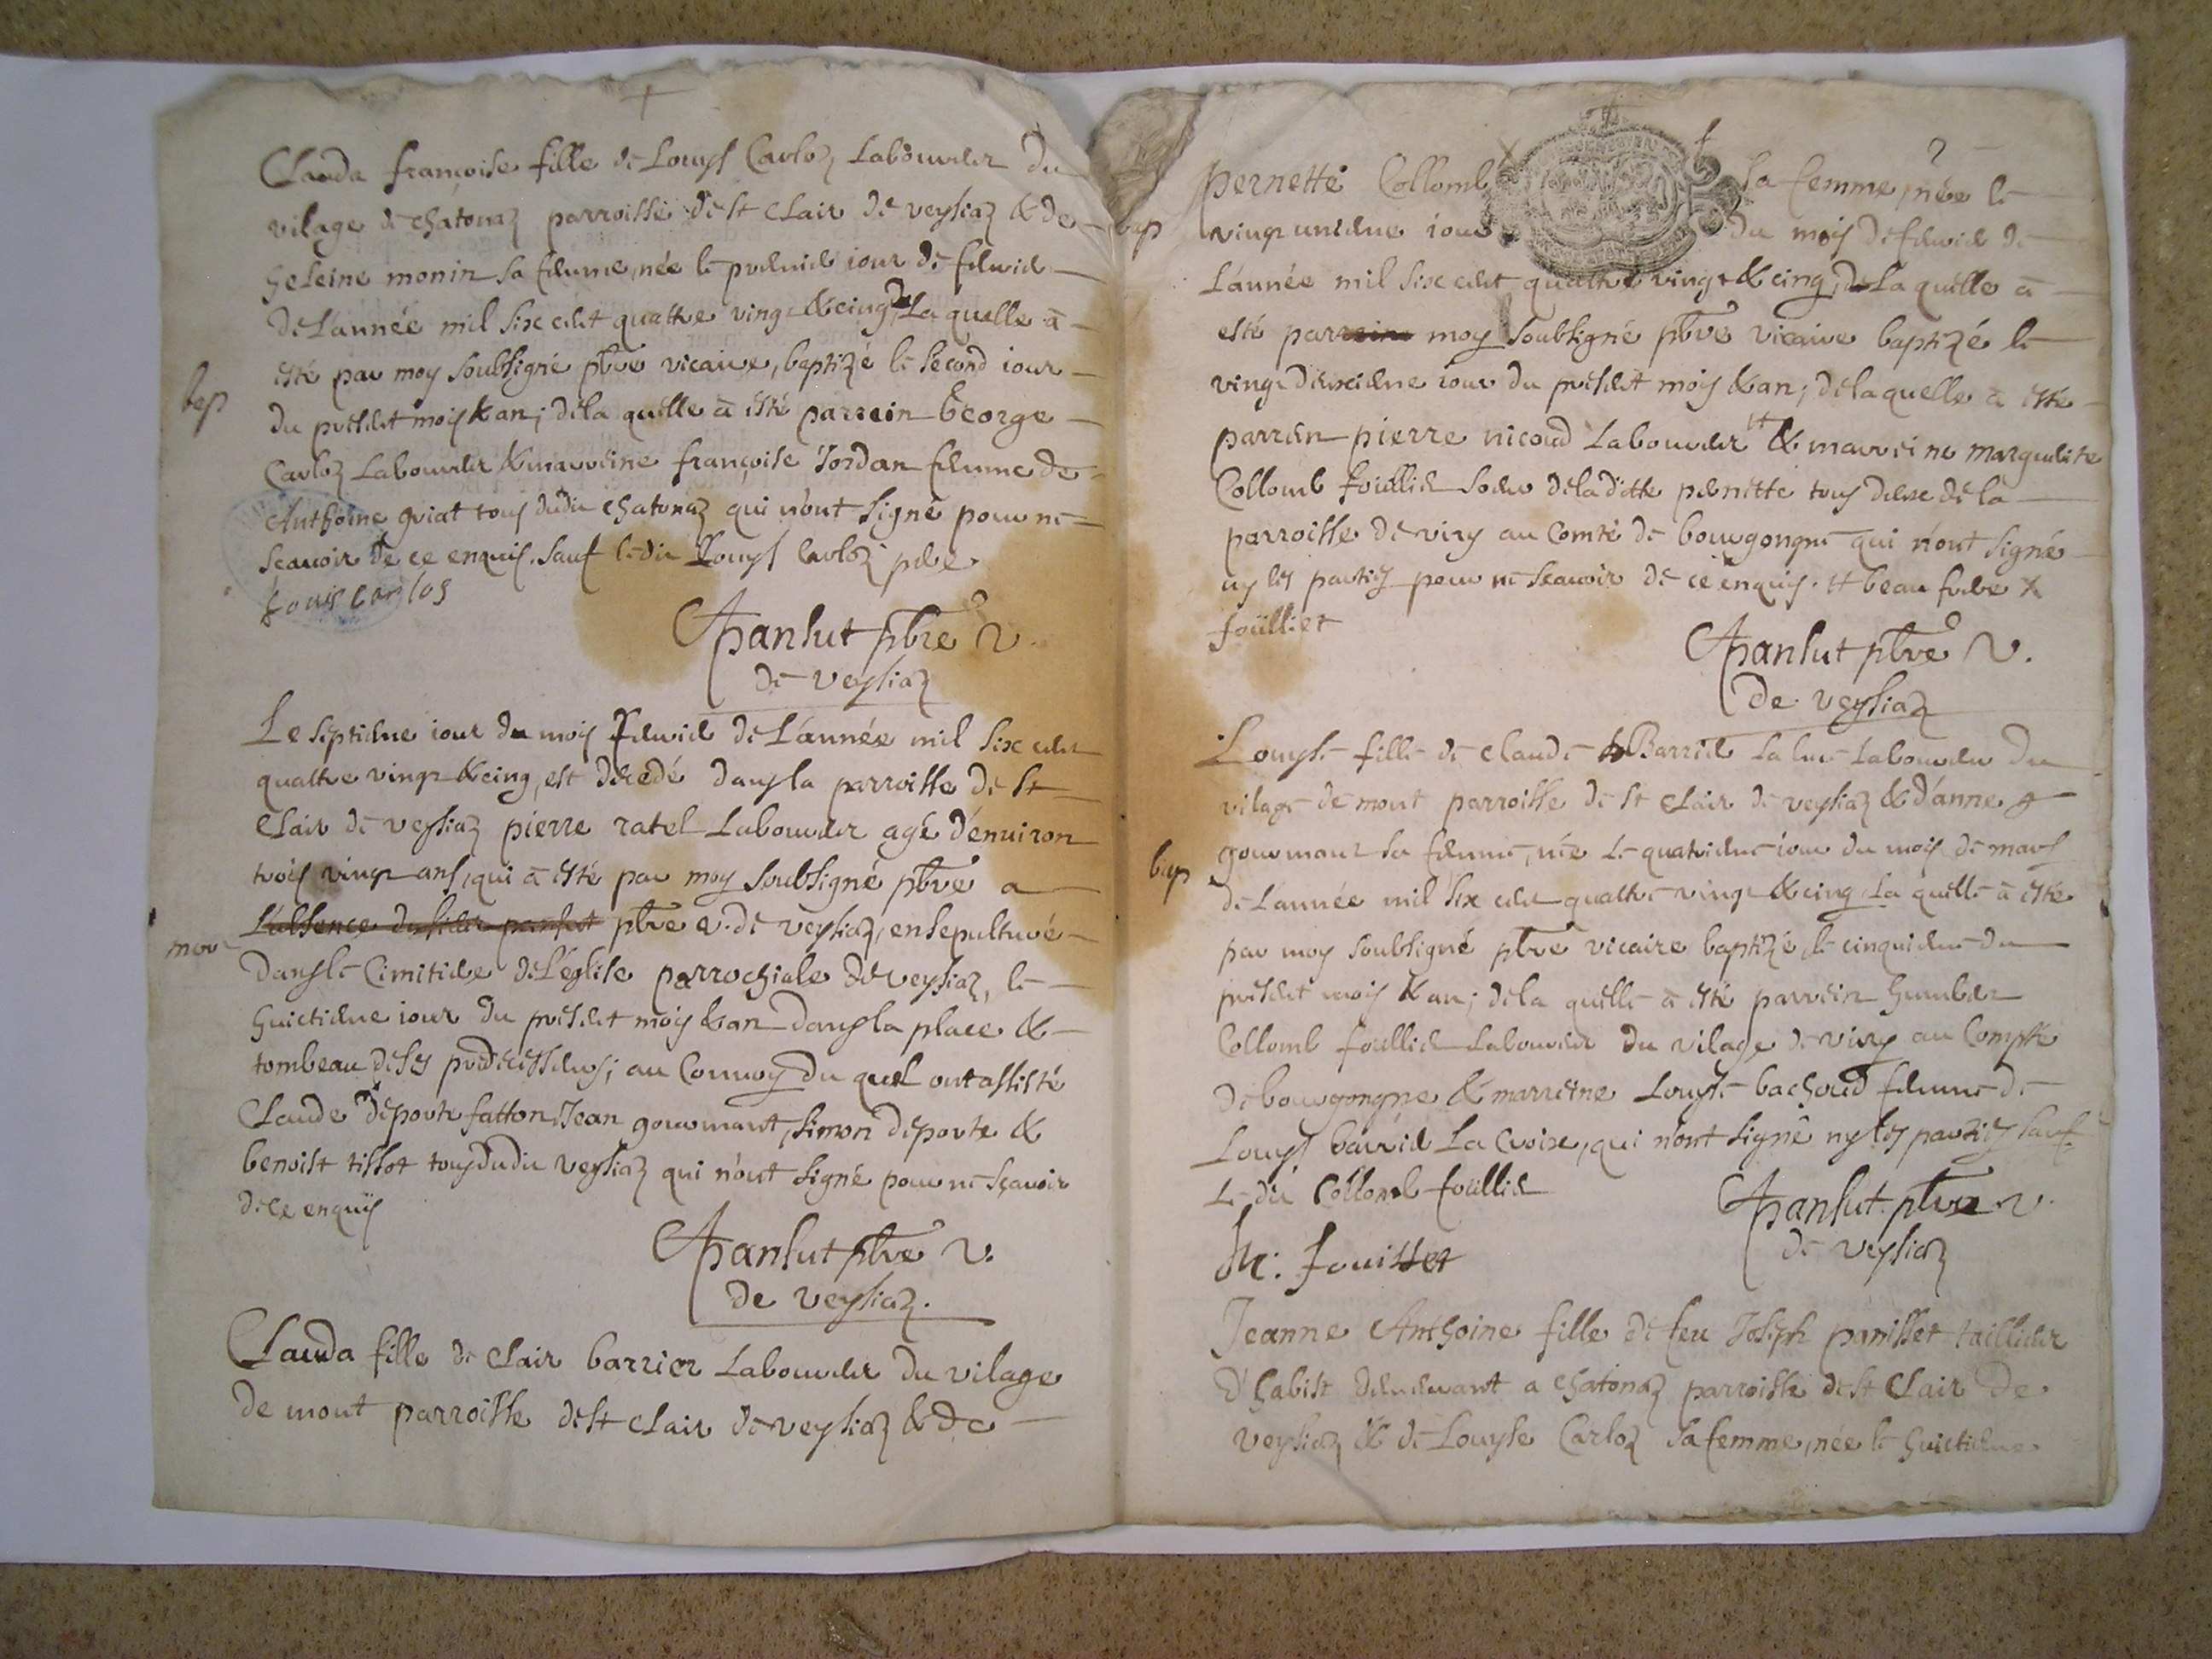 Clauda françoise fille de Louys Carloz Laboureur du
vilage de chatonaz parroisse de st Clair de veysiaz & de
heleine monin sa femme, née le premier iour de febvrier
de L'année mil six cent quattre vingt & cinq, La quelle à
esté par moy soubsigné pbre vicaire, baptizé le second iour
bap
du present mois & an; de la quelle à esté parrein George
Carloz Laboureur & marreine françoise Jordan femme de
Anthoine guiat tous dudit chatonaz qui n'ont signé pour ne
scavoir de ce enquis. sauf ledit Louys carloz pere.
Louis Carlos
Panlut pbre v.
de veysiaz
Le septieme iour du moy febvrier de L'année mil six cent
quattre vingt & cinq, est decedé dans la parroisse de st
Clair de veysiaz pierre ratel Laboureur agé d'enuiron
trois vingt ans, qui à esté par moy soubsigné pbre a
L'absence du sieur panlut pbre v. de veysiaz, ensepulturé
mor
dans le Cimitiere de L'eglise parrochiale de veysiaz, le
huictieme iour du present moy & an dans la place &
tombeau de ses predecesseurs; au Conuoy du quel ont assisté
Claude deporte fatton, Jean gourmant, simon deporte &
benoist tissot tous dudit veysiaz qui n'ont signé pour ne sçavoir
de ce enquis
Panlut pbre v.
de veysiaz.
Clauda fille de Clair barrier Laboureur du vilage
de mont parroisse de st Clair de veysiaz & de
pernette Collomb sa femme, née le
bap
vingt unieme iour du mois de febvrier de
L'année mil six cent quattre vingt & cinq, La quelle à
esté par moy soubsigné pbre vicaire baptizé le
vingt deuxieme iour du present mois & an; de la quelle à esté
parrein pierre nicoud Laboureur & marreine marguerite
Collomb foüillier soeur de la ditte pernette tous deux de la
parroisse de viry au Comté de bourgongne qui n'ont signé
ny les parties pour ne scavoir de ce enquis. beau frere
foülliet
Panlut pbre v.
de veysiaz
Louyse fille de Claude Barrier la luc Laboureur du
vilage de mont parroisse de st Clair de veysiaz & d'anne
gourmant sa femme, née le quatrieme iour du mois de mars
bap
de L'année mil six cent quattre vingt & cinq, La quelle à esté
par moy soubsigné pbre vicaire baptizé, le cinquieme du
present mois & an; de la quelle à esté parrein humbert
Collomb foüllier Laboureur du vilage de viry au Compté
de bourgongne & marreine Louyse bachoud femme de
Louys barrier La Croix, qui n'ont signé ny les parties sauf
le dit Collomb foüllier
Panlut pbre v.
de veysiaz
Jeanne Anthoine fille de feu Joseph panisset taillieur
d'habist demeurant a chatonaz parroisse de st Clair de
veysiaz & de Louyse Carloz sa femme, née le huictieme